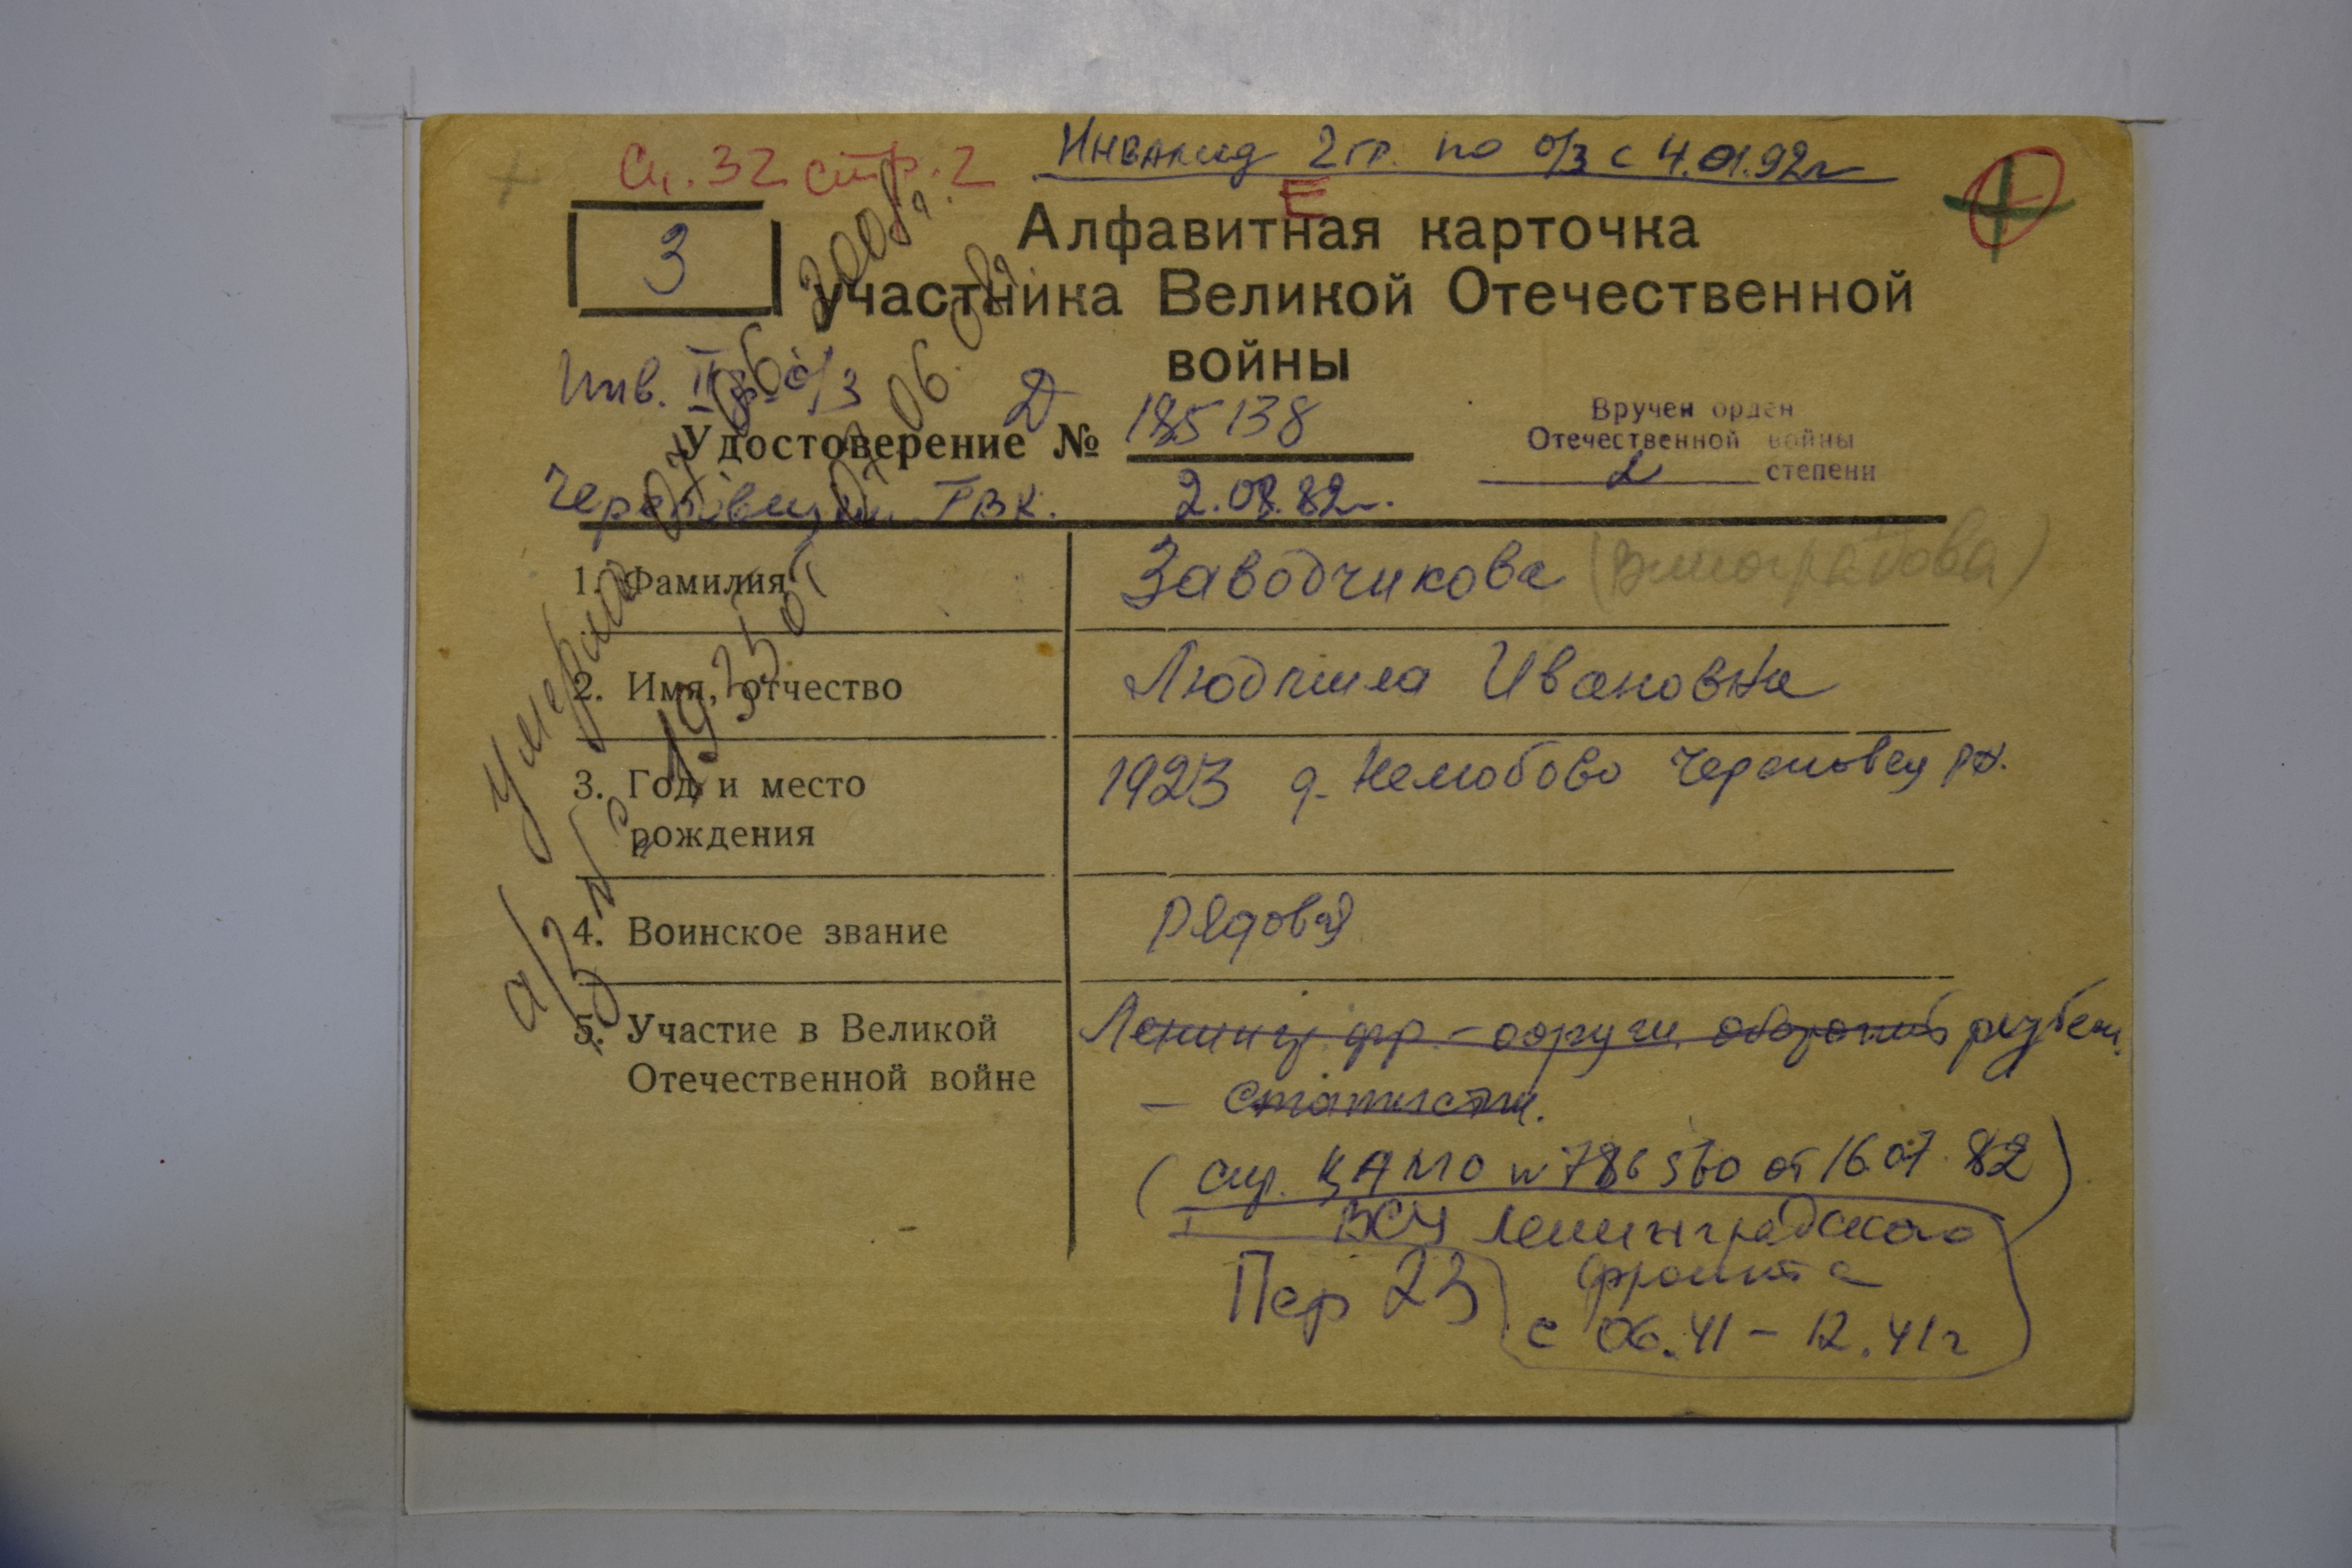 Сп. 32 стр. 2
Инвалид 2 гр. по о/з с 4.01.92г
Е
З
Алфавитная карточка
участника Великой Отечественной
войны
Инв. II гр. о/з
Д
Удостоверение № 185138
Вручен орден
Отечественной войны
2 степени
Череповецкий ГВК. 2.08.82г.
1. Фамилия Заводчикова (Виноградова)
2. Имя, отчество Людмила Ивановна
3. Год и место
рождения
1923 д. Нелюбово Череповец р-н.
4. Воинское звание рядовая
5. Участие в Великой
Отечественной войне
Ленингр. фр. рубеж.
(спр. ЦАМО № 786560 от 16.07.82)
ВСЧ Ленинградского
фронта
с 06.41 – 12.41г
Пер 23
Умерла 06 2008г.
а/з № 1935 от 06.08г